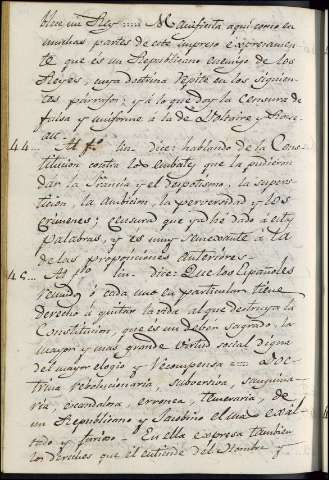 blece un Rey.... Manifiesta aqui como en
muchas partes de este impreso expresamen-
te que es un Republicano enemigo de los
Reyes, cuya doctrina repite en los siguien-
tes parrafos; y á la que doy la Censura de
falsa y uniforme á la de Voltaire y Rous-
eau.
44... Al fº lin. dice: hablando de la Cons-
titucion contra los embates que la pudieran
dar la tirania y el despotismo, la supers-
ticion, la ambicion, la perversidad y los
Crimenes; Censura que ya hé dado á estas
palabras, y es muy semexante á la
de las proposiciones anteriores.
45... Al fº lin. dice: Que los Españoles
reunidos ó cada uno en particular tiene
derecho á quitar la vida al que destruya la
Constitucion, que es un deber sagrado, la
mayor y mas grande virtud social digna
del mayor elogio y recompensa = Doc-
trina rebolucionaria, subversiva, sanguina-
ria, escandalosa, erronea, temeraria, de
un Republicano y Jacobino el mas exâl-
tado y furioso = En ella expresa tambien
los derechos que él entiende del Hombre y